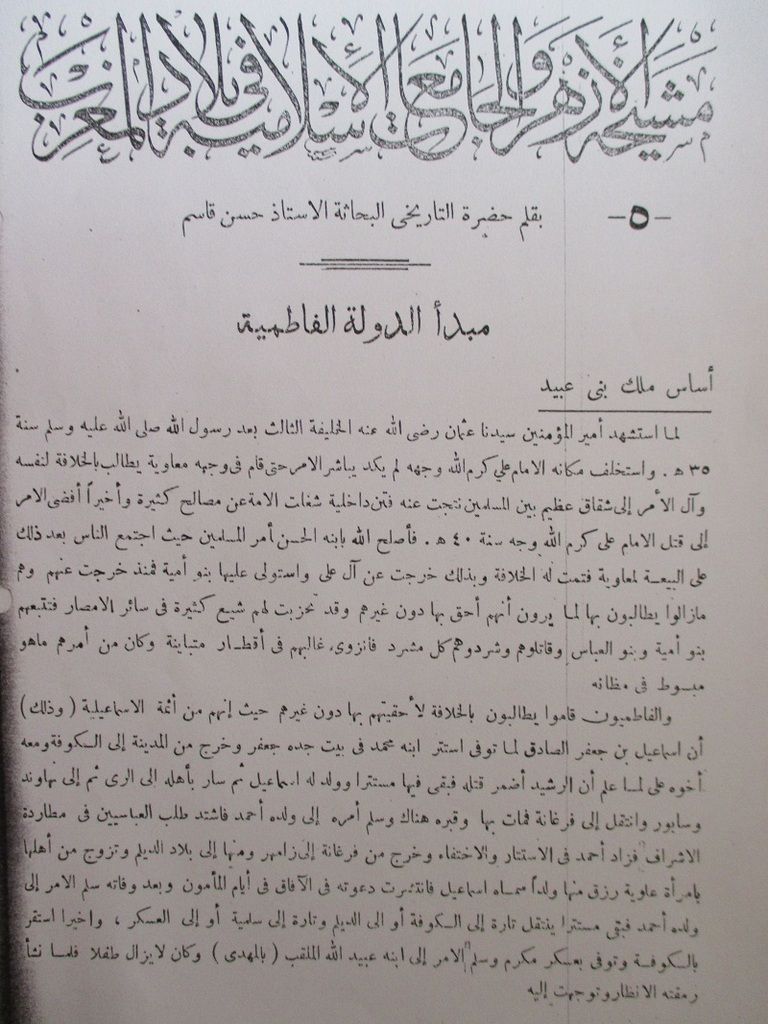 مشيخة الأزهر والجامعات الاسلامية في بلاد المغرب
— ٥ —
بقلم حضرة التاريخى البحاثة الاستاذ حسن قاسم
مبدأ الدولة الفاطمية
أساس ملك بنى عبيد
لما استشهد أمير المؤمنين سيدنا عثمان رضى الله عنه الخليفة الثالث بعد رسول الله صلى الله عليه وسلم سنة
٣٥ هـ . واستخلف مكانه الامام علي كرم الله وجهه لم يكد يباشر الامر حتى قام فى وجهه معاوية يطالب بالخلافة لنفسه
وآل الأمر إلى شقاق عظيم بين المسلمين نتجت عنه فتن داخلية شغلت الامة عن مصالح كثيرة وأخيراً أفضى الامر
إلى قتل الامام على كرم الله وجه سنة ٤٠ هـ . فأصلح الله بابنه الحسن أمر المسلمين حيث اجتمع الناس بعد ذلك
على البيعة لمعاوية فتمت له الخلافة وبذلك خرجت عن آل على واستولى عليها بنو أمية فمنذ خرجت عنهم وهم
مازالوا يطالبون بها لما يرون أنهم أحق بها دون غيرهم وقد تحزبت لهم شيع كثيرة فى سائر الامصار فتتبعهم
بنو أمية وبنو العباس وقاتلوهم وشردوهم كل مشرد فانزوى غالبهم فى أقطار متباينة وكان من أمرهم ماهو
مبسوط فى مظانه
والفاطميون قاموا يطالبون بالخلافة لأحقيتهم بها دون غيرهم حيث إنهم من أئمة الاسماعيلية ( وذلك )
أن اسماعيل بن جعفر الصادق لما توفى استتر ابنه محمد فى بيت جده جعفر وخرج من المدينة إلى الكوفة ومعه
أخوه على لما علم أن الرشيد أضمر قتله فبقى فيها مستترا وولد له اسماعيل ثم سار بأهله الى الرى ثم إلى نهاوند
وسابور وانتقل إلى فرغانة فمات بها وقبره هناك وسلم أمره إلى ولده أحمد فاشتد طلب العباسيين فى مطاردة
الاشراف فزاد أحمد فى الاستتار والاختفاء وخرج من فرغانة إلى زامهر ومنها إلى بلاد الديلم وتزوج من أهلها
بامرأة علوية رزق منها ولداً سماه اسماعيل فانتشرت دعوته فى الآفاق فى أيام المأمون وبعد وفاته سلم الامر إلى
ولده أحمد فبقى مستترا ينتقل تارة إلى الكوفة أو الى الديلم وتارة إلى سلمية أو إلى العسكر ، واخيرا استقر
بالكوفة وتوفى بعسكر مكرم وسلم الامر إلى ابنه عبيد الله الملقب ( بالمهدى ) وكان لايزال طفلا فلما نشأ
رمقته الانظار وتوجهت إليه